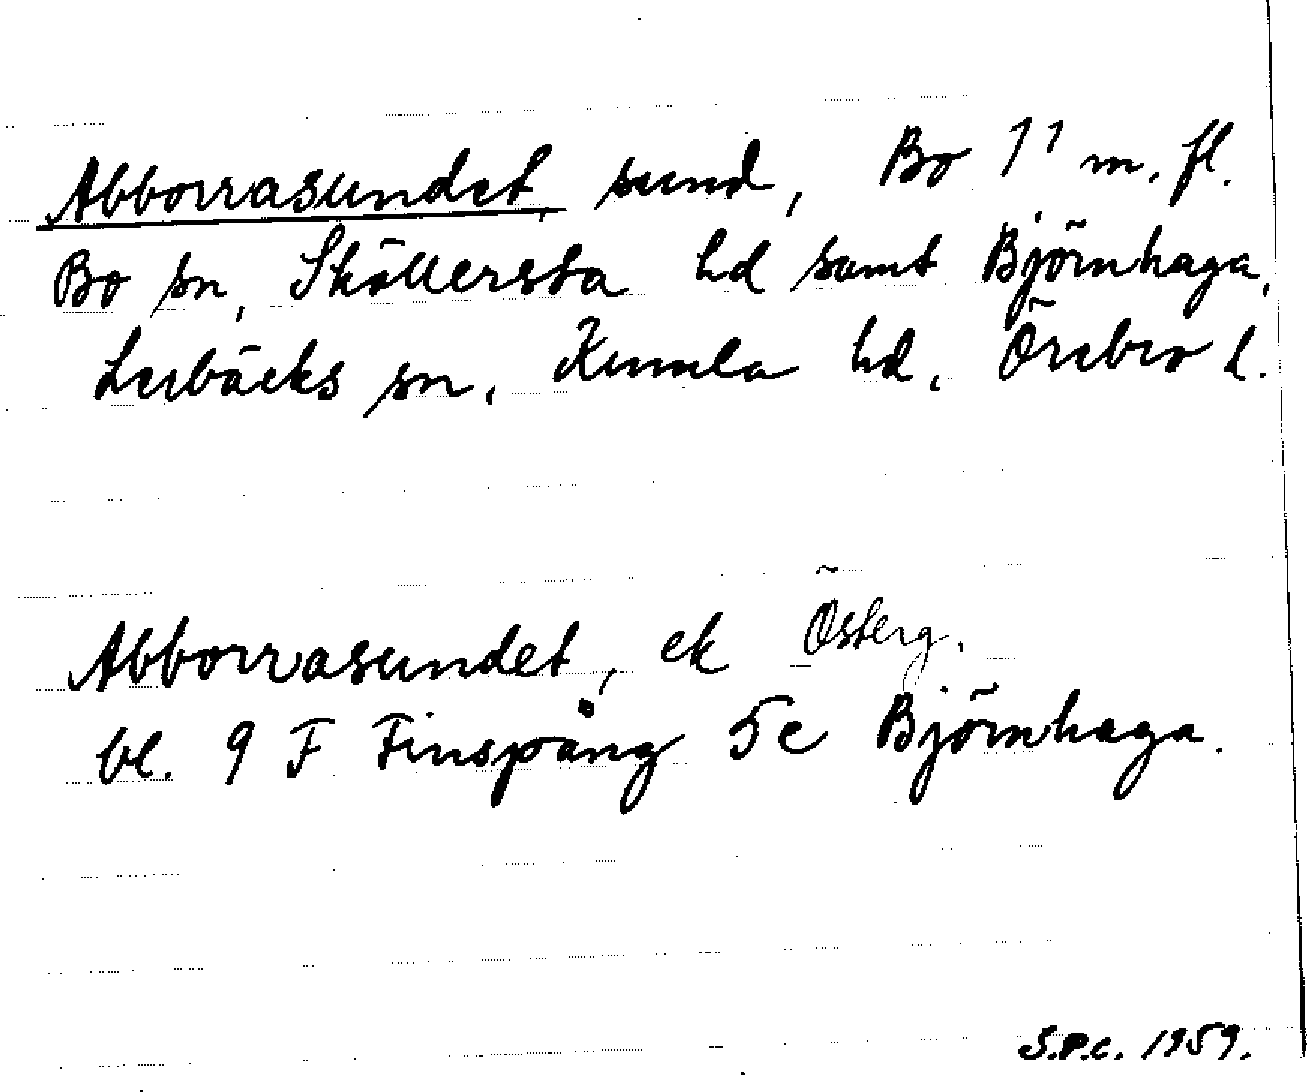 Abborrasundet, sund, Bo 1¹ m. fl.
Bo sn, Sköllersta hd samt Björnhaga,
Lerbäcks sn, Kumla hd, Örebro l.
Abborrasundet, ek Österg.
bl. 9 F Finspång 5c Björnhaga.
S.P.c. 1959.